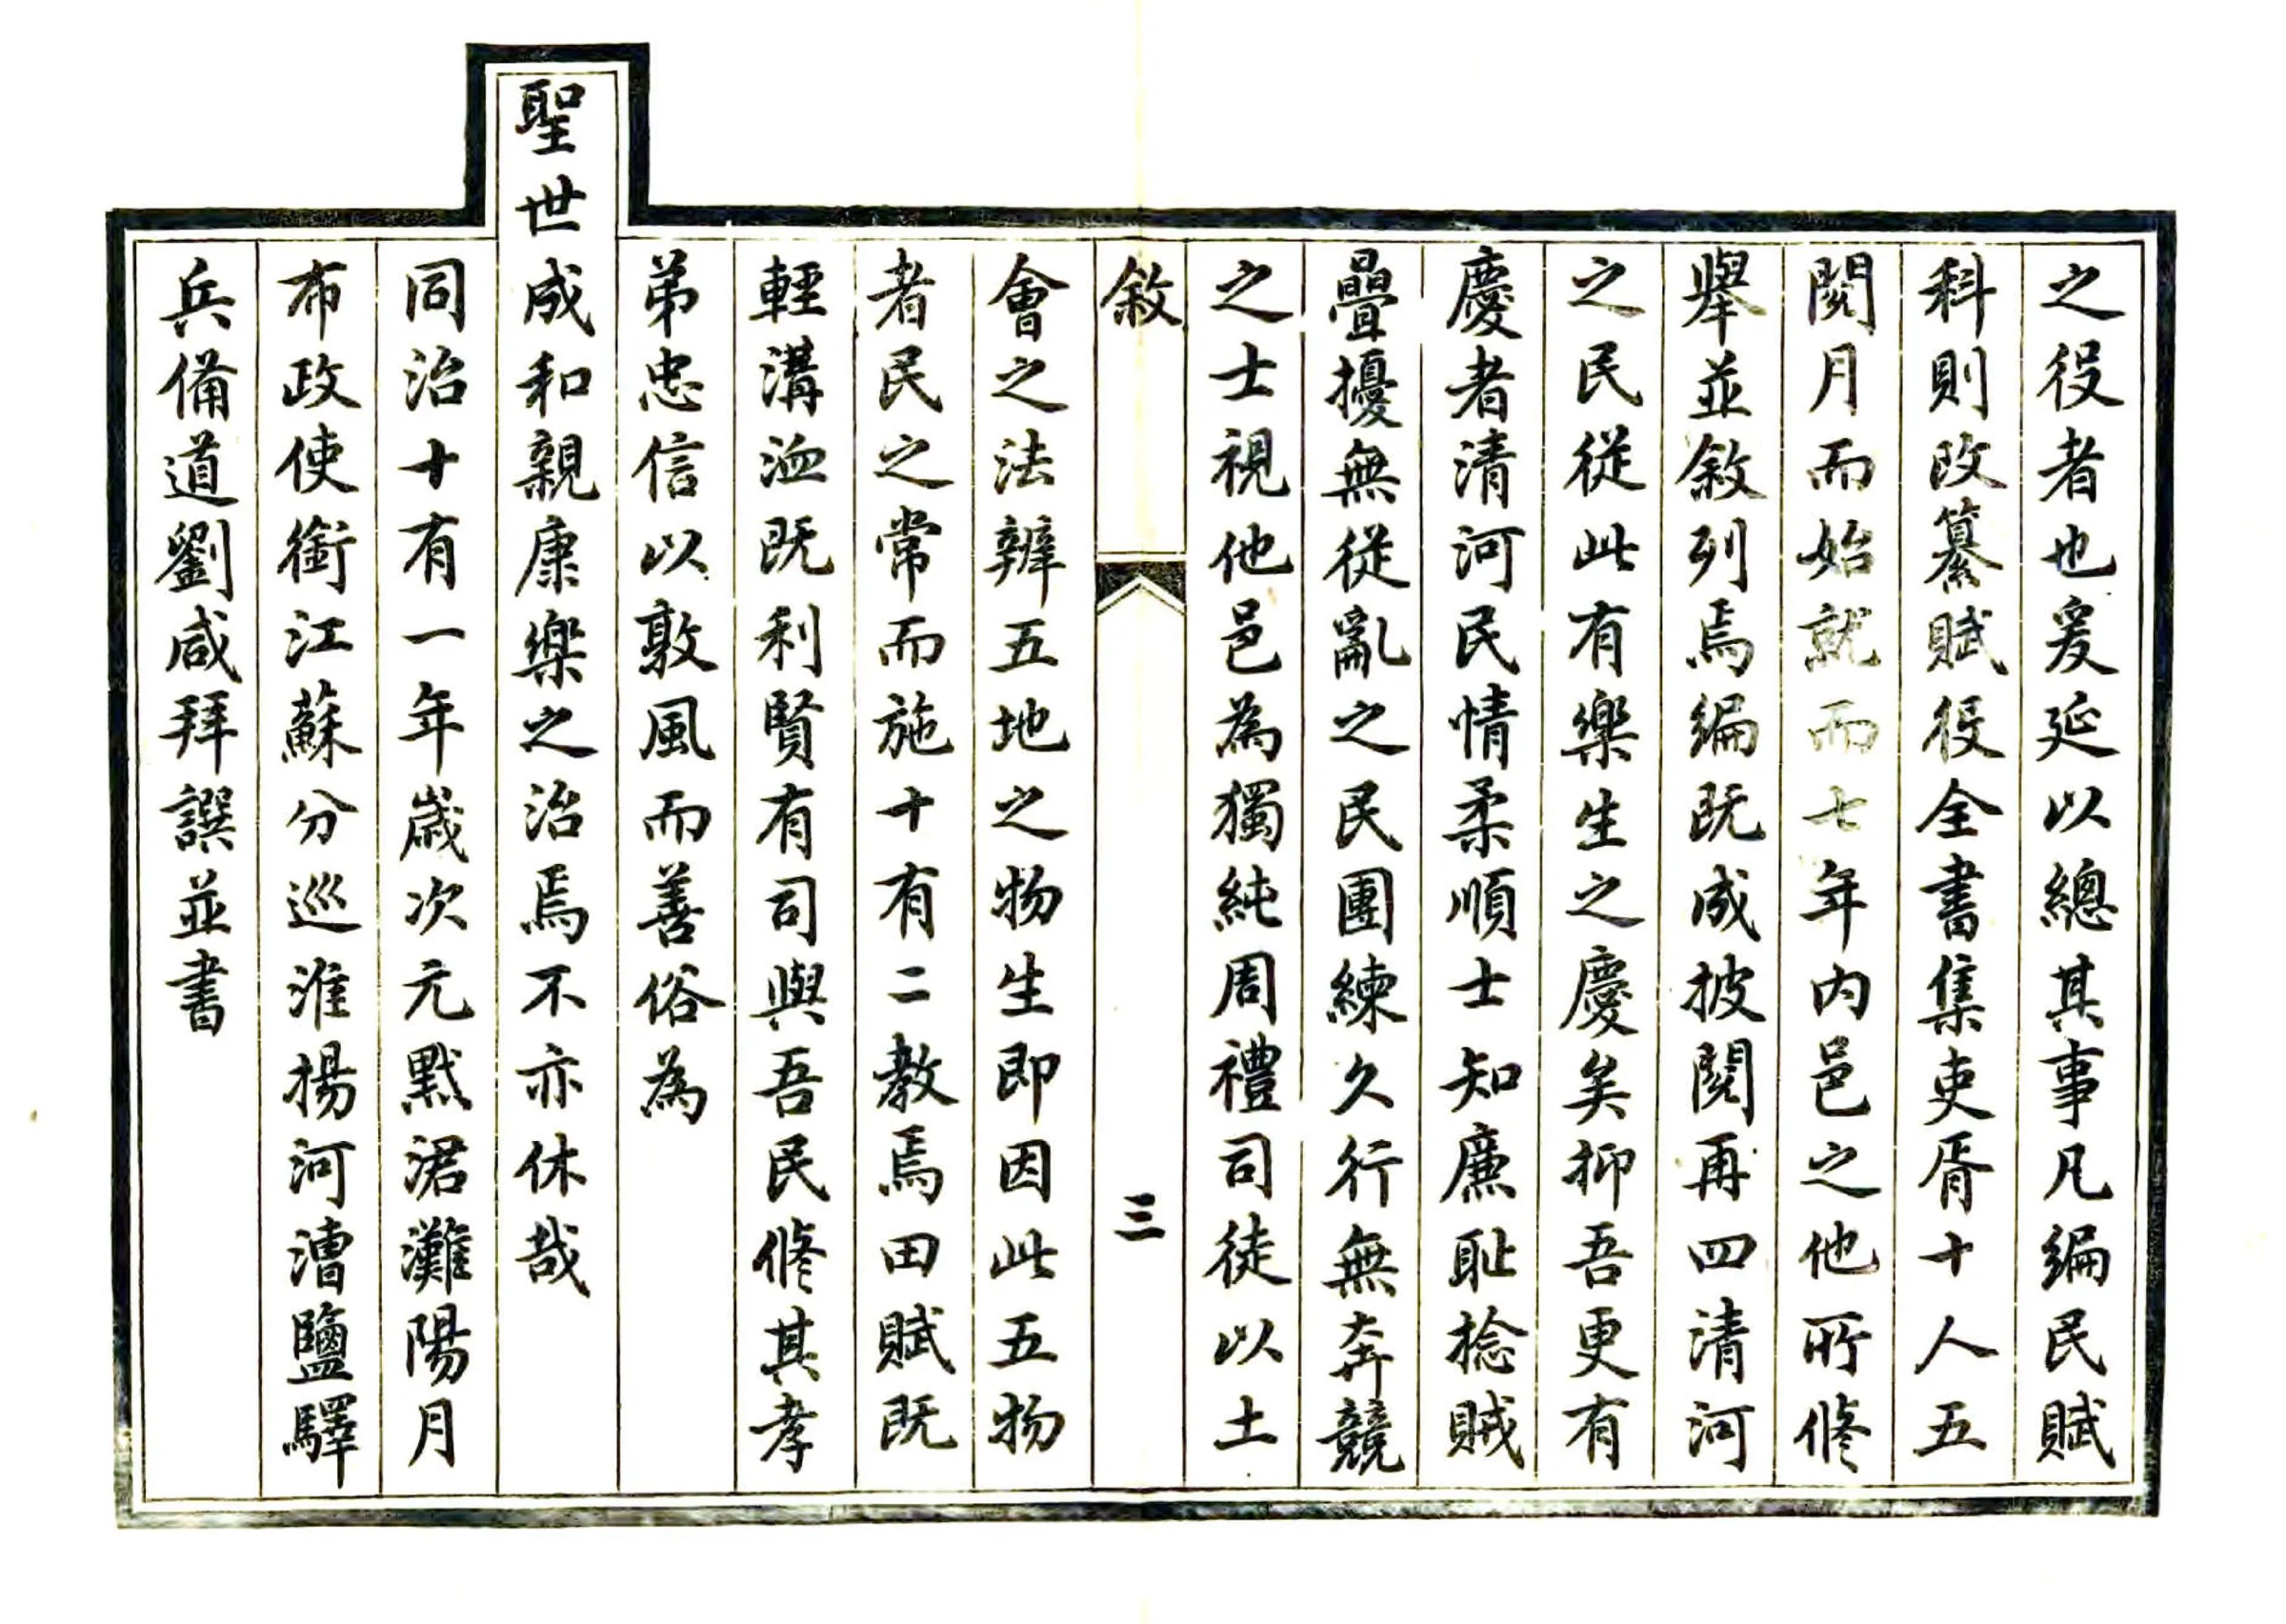 之役者也爰延以總其事凡編民賦
科則改纂賦役全書集吏胥十人五
閱月而始就而七年內邑之他所修
舉並敘列焉編既成披閱再四清河
之民從此有樂生之慶矣抑吾更有
慶者清河民情柔順士知廉恥捻賊
疊擾無從亂之民團練久行無奔競
之士視他邑為獨純周禮司徒以土
敘
三
會之法辨五地之物生即因此五物
者民之常而施十有二教焉田賦既
輕溝洫既利賢有司與吾民修其孝
弟忠信以敦風而善俗為
聖世成和親康樂之治焉不亦休哉
同治十有一年歲次元黓涒灘陽月
布政使銜江蘇分巡淮揚河漕鹽驛
兵備道劉咸拜譔並書